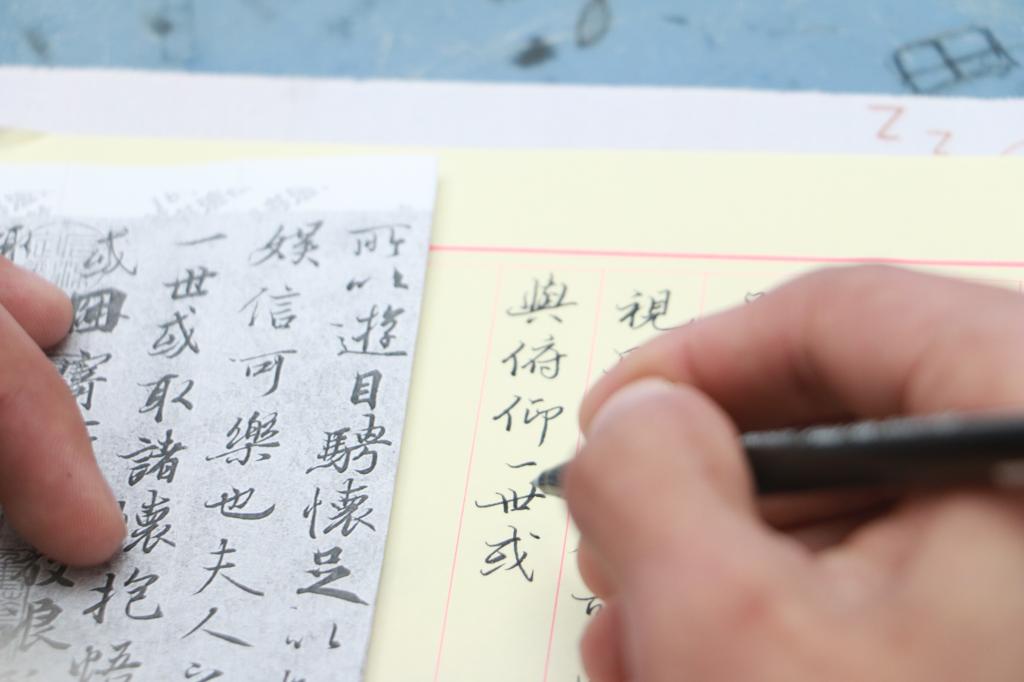 視
與俯仰一世或
所以遊目騁懷足以
娛信可樂也夫人
一世或取諸懷抱悟
或因寄
浪
z z